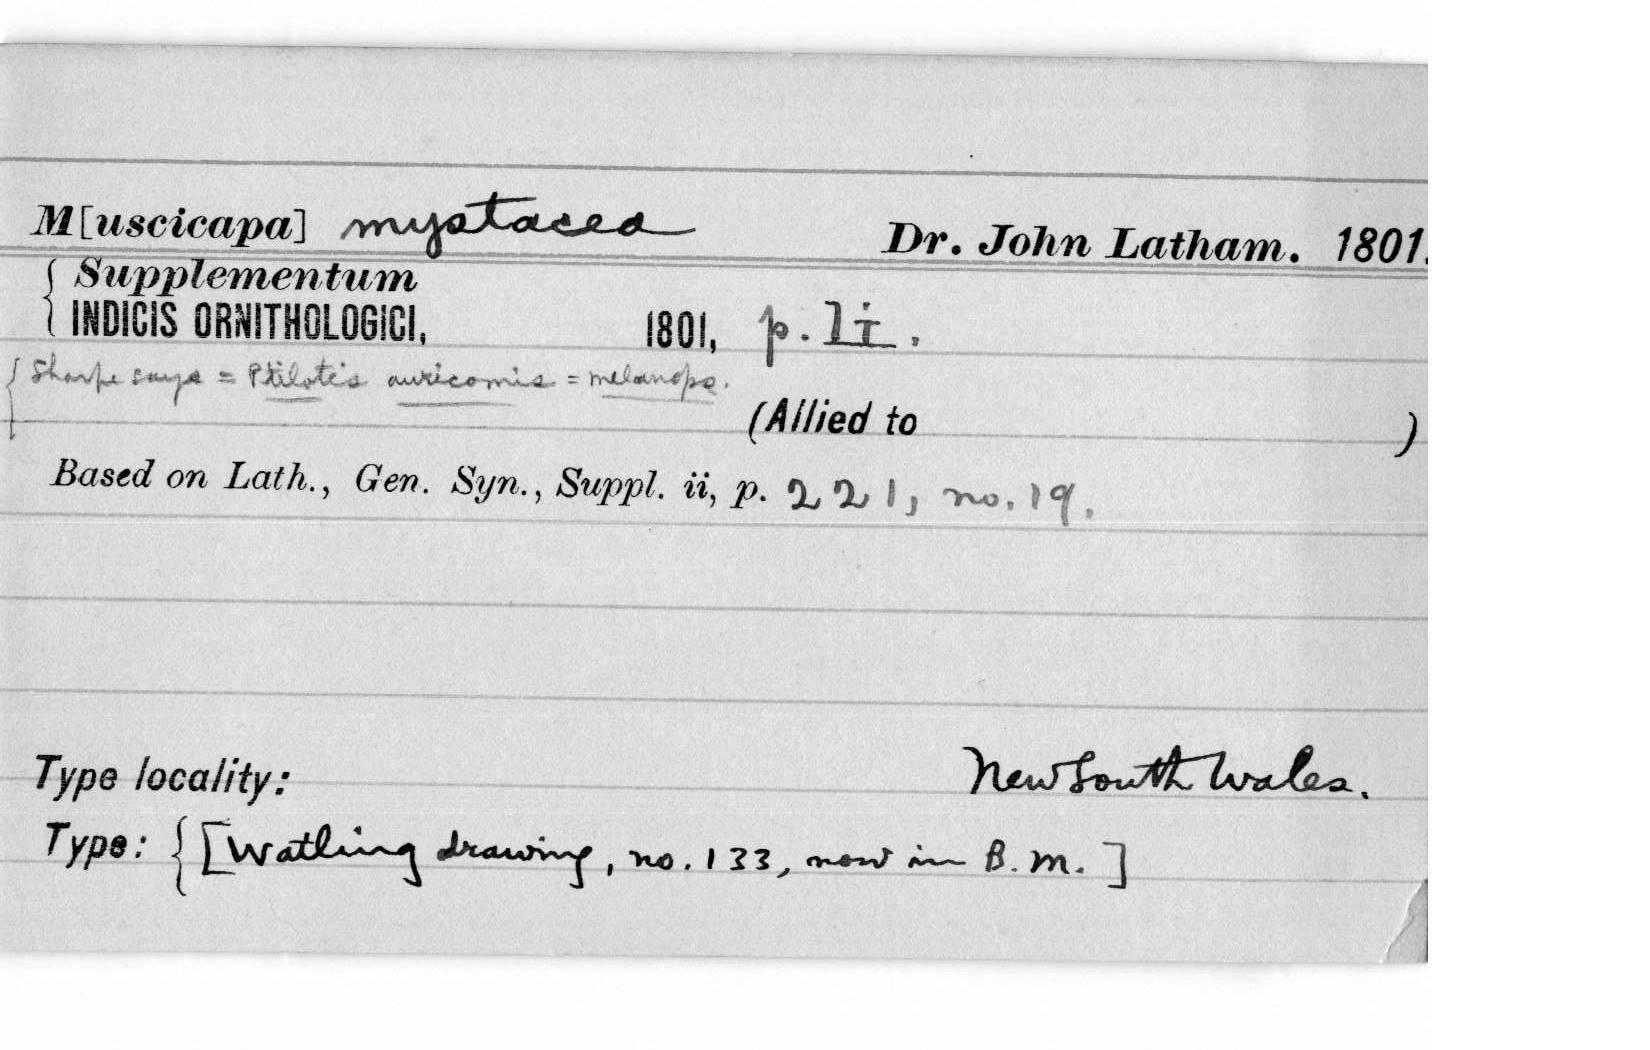 M[uscicapa] mystacea Dr. John Latham. 1801.
{ Supplementum
INDICIS ORNITHOLOGICI, 1801, p. li.
{ Sharpe says = Ptilotis auricomis = melanops.
(Allied to )
Based on Lath., Gen. Syn., Suppl. ii, p. 221, no. 19.
Type locality: New South Wales.
Type: { [Watling drawing, no. 133, now in B. M.]